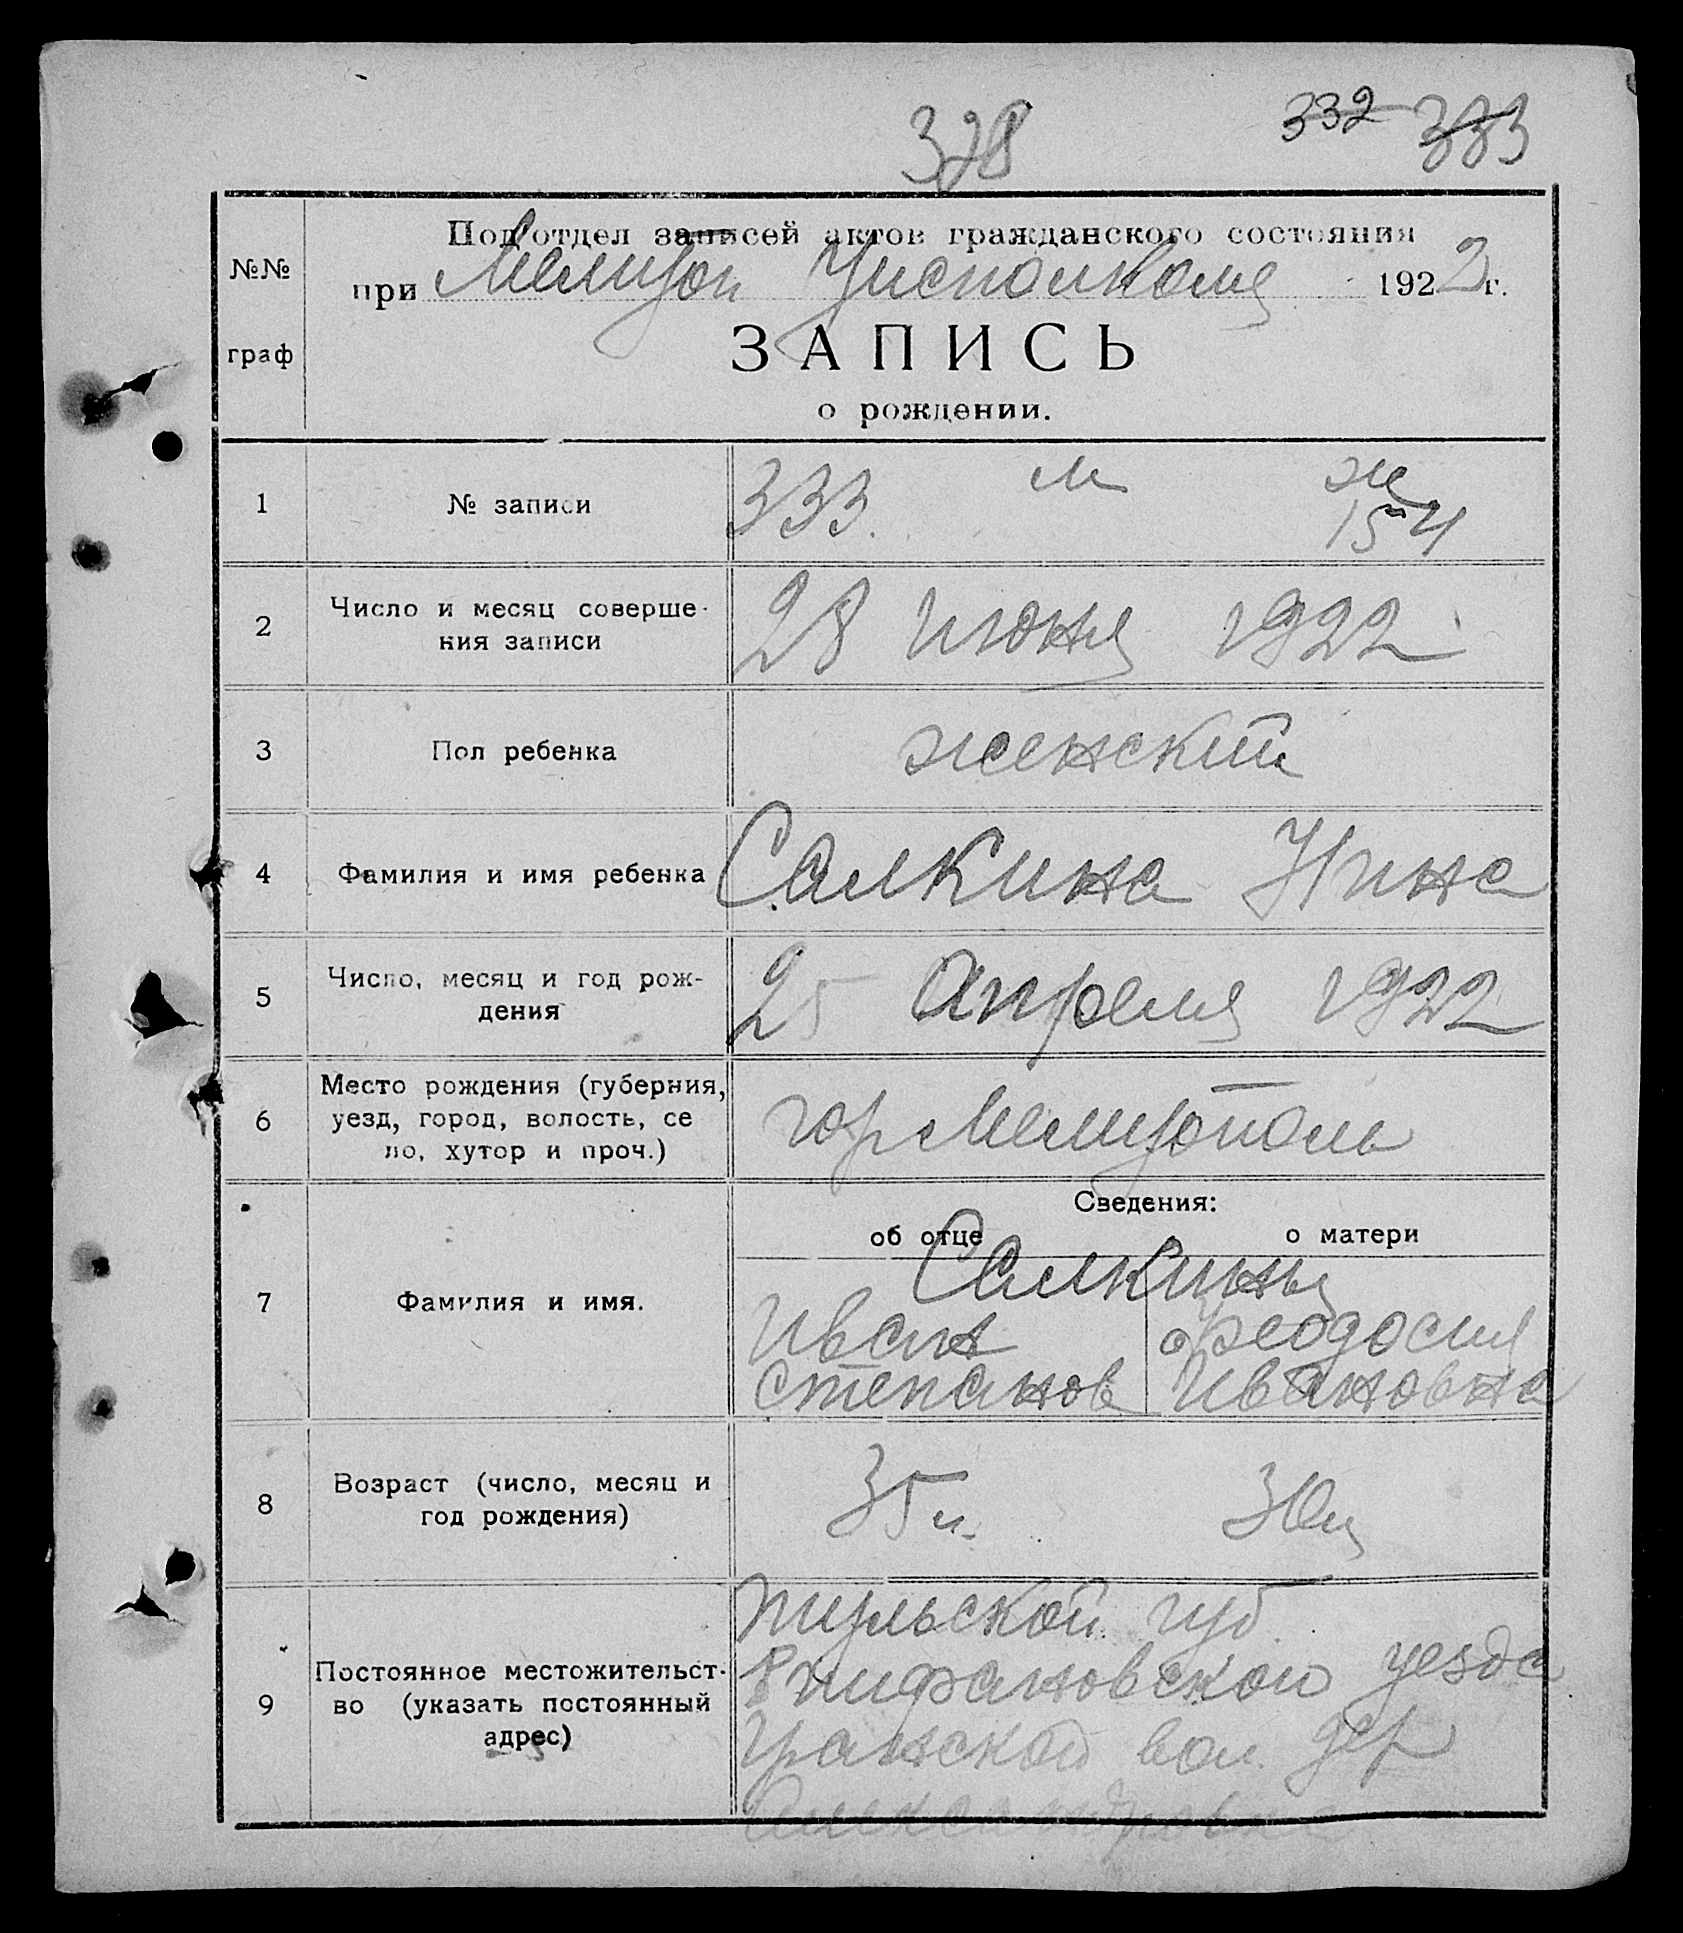 328 332 333
Подотдел записей актов гражданского состояния
№№
при Мелитоп Уисполкоме 1922 г.
граф
ЗАПИСЬ
о рождении.
1 № записи 333. м ж
154
2 Число и месяц соверше-
ния записи 28 июня 1922
3 Пол ребенка женский
4 Фамилия и имя ребенка Салкина Нина
5 Число, месяц и год рож-
дения 25 Апреля 1922
6 Место рождения (губерния,
уезд, город, волость, се
ло, хутор и проч.) гор Мелитополь
Сведения:
об отце о матери
Салкины
7 Фамилия и имя.
Иван Феодосия
Степанов Ивановна
8 Возраст (число, месяц и
год рождения) 35 л. 30 л
9 Постоянное местожительст-
во (указать постоянный
адрес)
тульской губ.
Епифановского уезда
вол. дер
Александровка